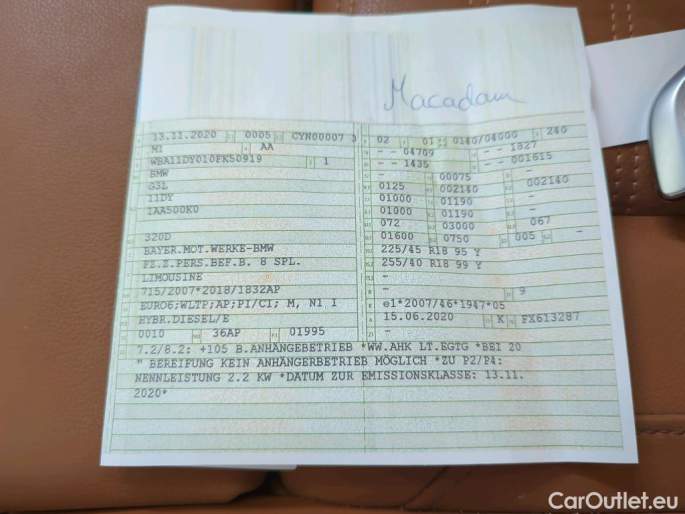 Macadam
13.11.2020 0005 CYN00007 3
M1 AA
WBA11DY010FK50919 1
BMW
G3L
11DY
1AA500K0
320D
BAYER.MOT.WERKE-BMW
FZ.Z.PERS.BEF.B. 8 SPL.
LIMOUSINE
715/2007*2018/1832AP
EURO6;WLTP;AP;PI/CI; M, N1 I
HYBR.DIESEL/E
0010 36AP 01995
02 01 0140/04000 240
- - 04709 - - 1827
- - 1435 - - 001615
- 00075 -
0125 002140 002140
01000 01190 -
01000 01190 -
072 03000 067
01600 0750 005 -
225/45 R18 95 Y
255/40 R18 99 Y
-
- 9
e1*2007/46*1947*05
15.06.2020 K FX613287
-
7.2/8.2: +105 B.ANHÄNGEBETRIEB *WW.AHK LT.EGTG *BEI 20
" BEREIFUNG KEIN ANHÄNGERBETRIEB MÖGLICH *ZU P2/P4:
NENNLEISTUNG 2.2 KW *DATUM ZUR EMISSIONSKLASSE: 13.11.
2020*
CarOutlet.eu